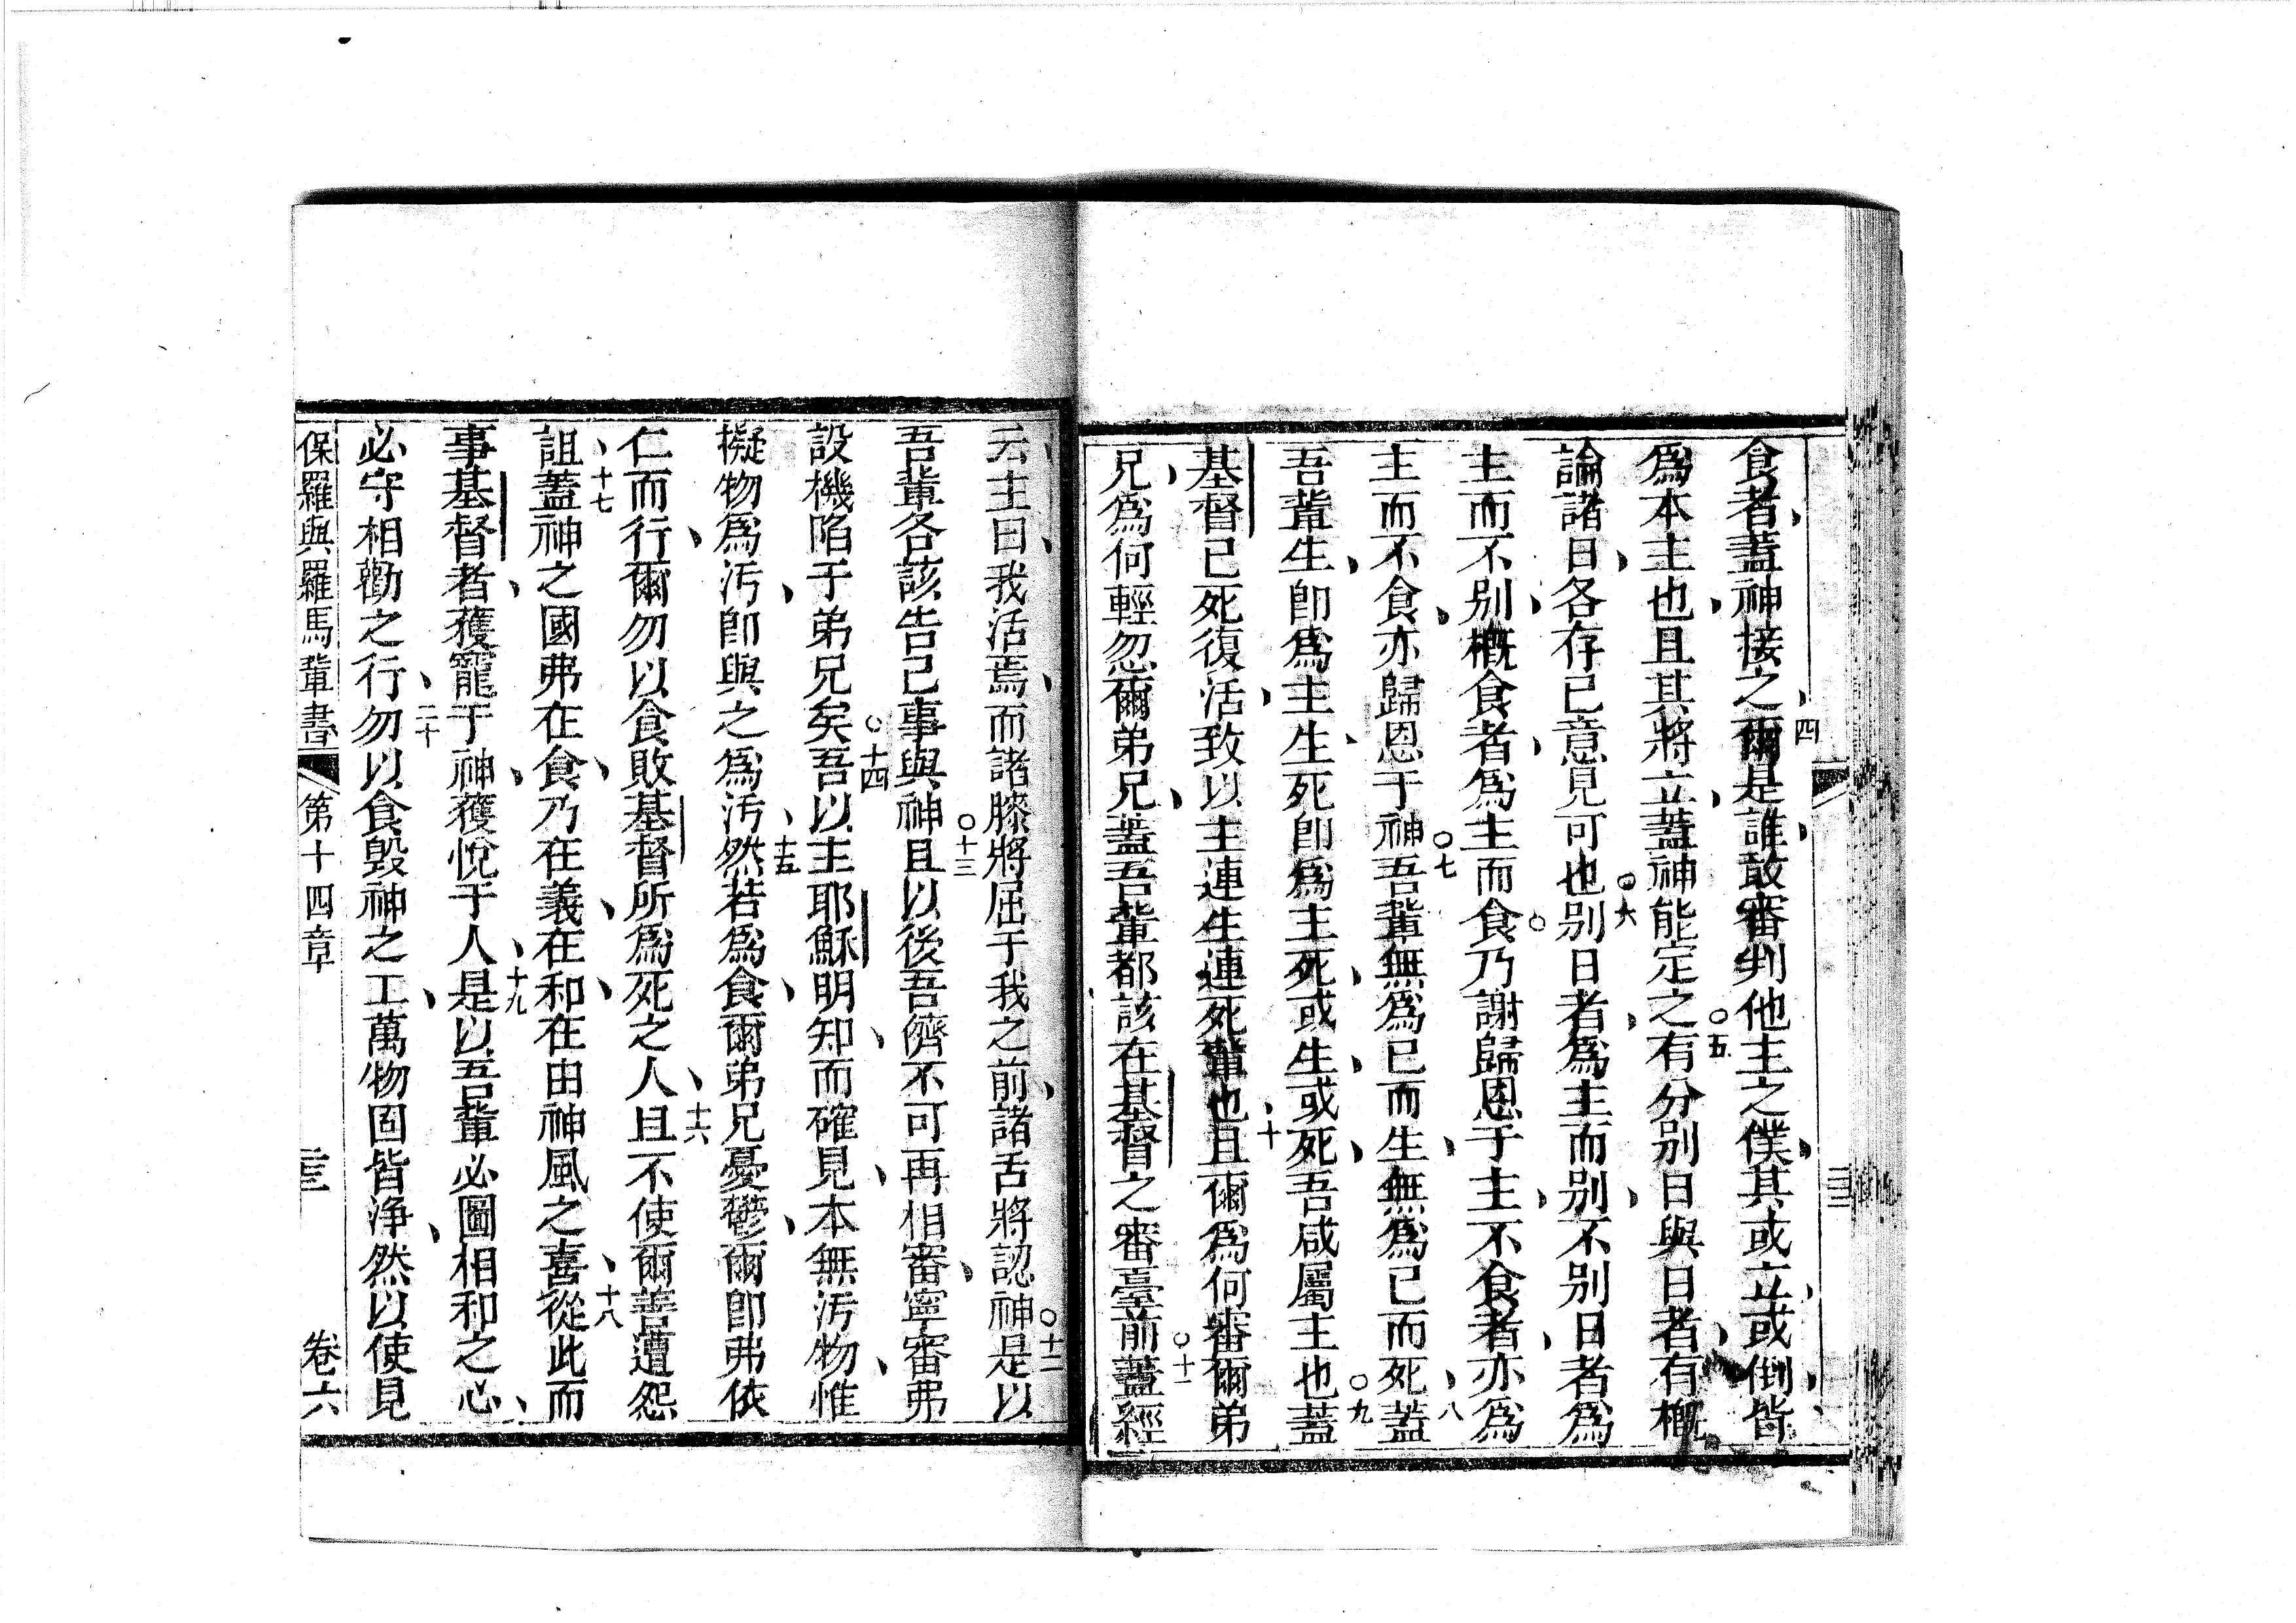 食者、蓋神接之、四爾是誰、敢審判他主之僕、其或立、或倒、皆、
爲本主也、且其將立、蓋神能定之○五有分別日與日者、有概
論諸日、各存己意見可也○六別日者、爲主而別、不別日者爲
主而不別、概食者、爲主而食○乃謝歸恩于主、不食者、亦爲
主而不食、亦歸恩于神○七吾輩無爲己而生、無爲己而死、八蓋
吾輩生、卽爲主生、死卽爲主死、或生、或死、吾咸屬主也○九蓋
基督已死復活、致以主連生連死輩也、十且爾爲何審爾弟
兄、爲何輕忽爾弟兄、蓋吾輩都該在基督之審臺前○十一蓋經
云、主曰、我活焉、而諸膝將屈于我之前、諸舌將認神○十二是以
吾輩各該告己事與神○十三且以後吾儕不可再相審、寧審弗
設機陷于弟兄矣○十四吾以主耶穌明知、而確見、本無汚物、惟
擬物爲汚、卽與之爲汚、十五然若爲食、爾弟兄憂鬱、爾卽弗依
仁而行、爾勿以食敗基督所爲死之人、十六且不使爾善遭怨
詛、十七蓋神之國弗在食、乃在義、在和、在由神風之喜、十八從此而
事基督者、獲寵于神、獲悅于人、十九是以吾輩必圖相和之心、
必守相勸之行、二十勿以食毀神之工、萬物固皆淨、然以使見
保羅與羅馬輩書 第十四章 三 卷六